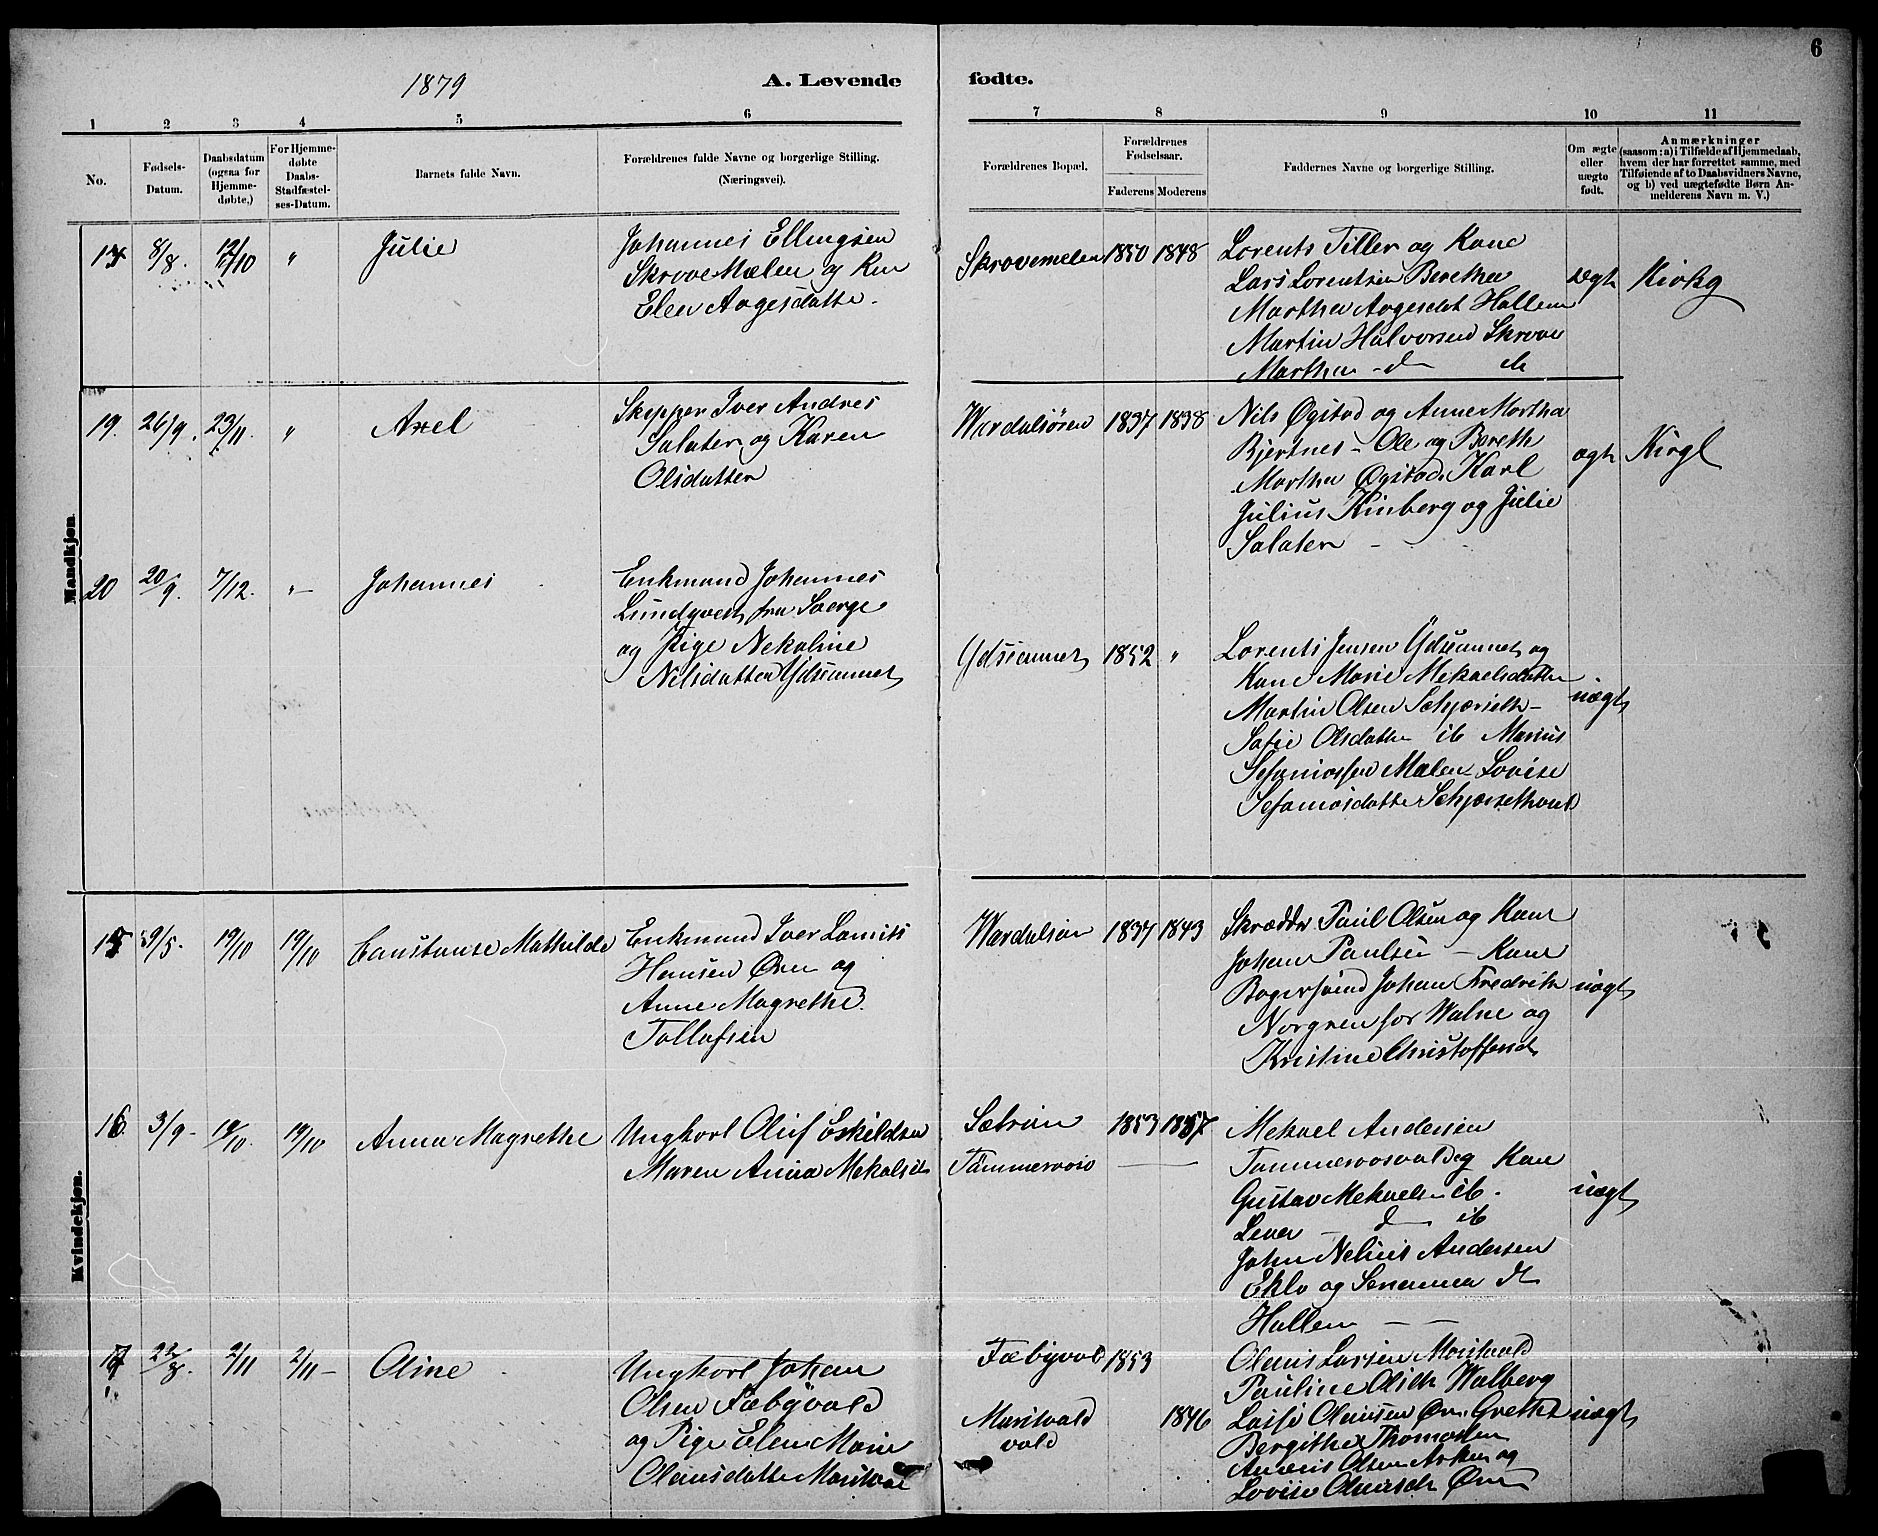 6
1879
A. Levende fødte.
1 2 3 4 5 6 7 8 9 10 11
No.
Fødsels-
Datum.
Daabsdatum
(ogsaa for
Hjemme-
døbte,)
For Hjemme-
døbte
Daabs-
Stadfæstel-
ses-Datum.
Barnets fulde Navn.
Forældrenes fulde Navne og borgerlige Stilling.
(Næringsvei).
Forældrenes Bopæl.
Forældrenes
Fødselsaar.
Faderens Moderens
Faddernes Navne og borgerlige Stilling.
Om ægte
eller
uægte
født.
Anmærkninger
(saasom: a) i Tilfælde af Hjemmedaab,
hvem der har forrettet samme, med
Tilføiende af to Daabsvidners Navne,
og b) ved uægtefødte Børn An-
melderens Navn m. V.)
Mandkjøn.
8/8. 12/10 " Julie
Johannes Ellingsen
Skrove Mælen og Kone
Elen Aagesdatter.
Skrovemelen 1850 1848
Lorents Tiller og Kone
Lars Lorentsen Beretha
Martha Aagesdt Hallem
Martin Halvorsend Skrove
Martha - d
ægt
19. 26/9. 23/11. " Axel
Skipper Iver Andres
Salater og Karen
Olsdatter
Wærdalsøren 1837 1838
Nils Øgstad og Anne Martha
Bjertnes - Ole og Bereth
Martha Øgstad. Karl
Julius Kinberg og Julie
Salater -
ægt
20 20/9. 7/12. " - Johannes
Enkmand Johannes
Lundqvest fra Sverge
og Pige Nekoline
Nilsdatter Ydseunnet
Ydseunnet 1852 "
Lorents Jensen Ydseunnet og
Kone Marie Mekaelsdatter
Martin Olsen
Sofie Olsdatter ib Marius
Mælen Lovise
uægt
Kvindekjøn.
15 9/5. 19/10 19/10 Constanse Mathilde
Enkmand Iver Lorents
Hansen Øren og
Anne Magrethe.
Tollefsen
Wærdalsøren 1837 1843
Skrædder Paul Olsen og Kone
Johan Paulsen - Kone
Bogersvend Johan Fredrik
Norgren for Walne og
Kristine Christoffersdt
uægt
16. 3/9 - 19/10. 19/10 Anna Magrethe
Ungkarl Oluf Eskildsen
Maren Anna Mekalsdt
1853 1857
Mekael Andersen
og Kone
Gustav Mekaelsen ib.
- d - ib
John Nelius Andersen
Eklo og
Hallem - -
uægt
17 22/8. 2/11 2/11 - Oline
Ungkarl Johan
Olsen Fæbyvald
og Pige Elen Marie
Olausdatter Maritvold
Fæbyvold 1853
Maritvald
vold
1846
Olaus Larsen Maritvald
Pauline Olsdt Walberg
Olaussen Øren. Grethe
Bergithe Thomasen
Olsen og
Lovise Olausdt Øren
uægt